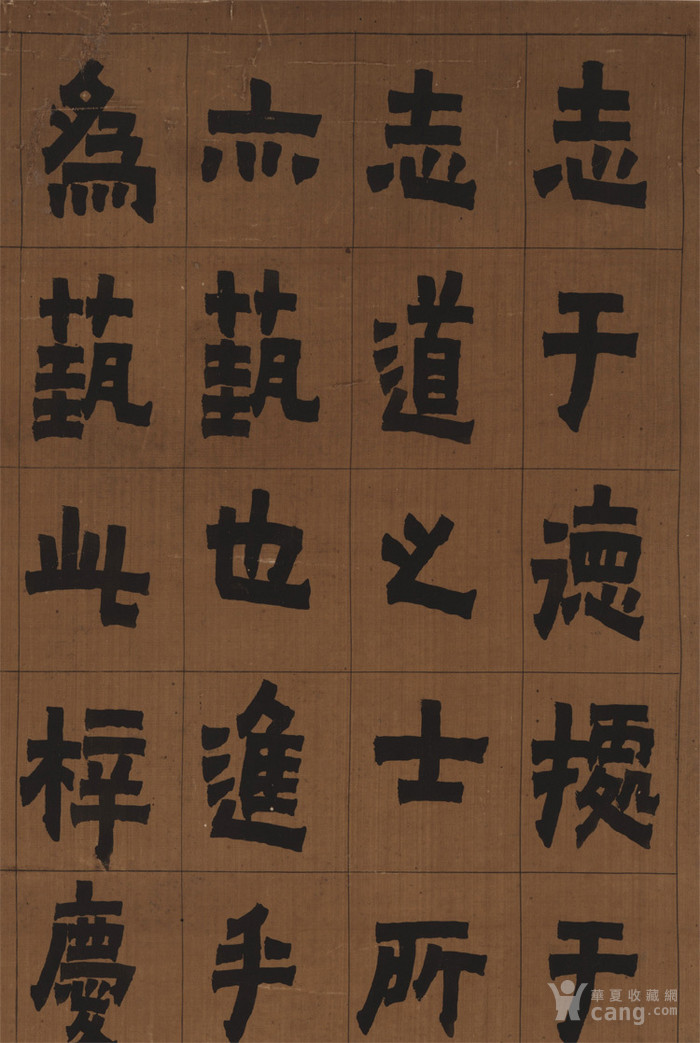 志于德據于
志道之士所
亦藝也進乎
爲藝此梓慶
華夏收藏網
cang.com